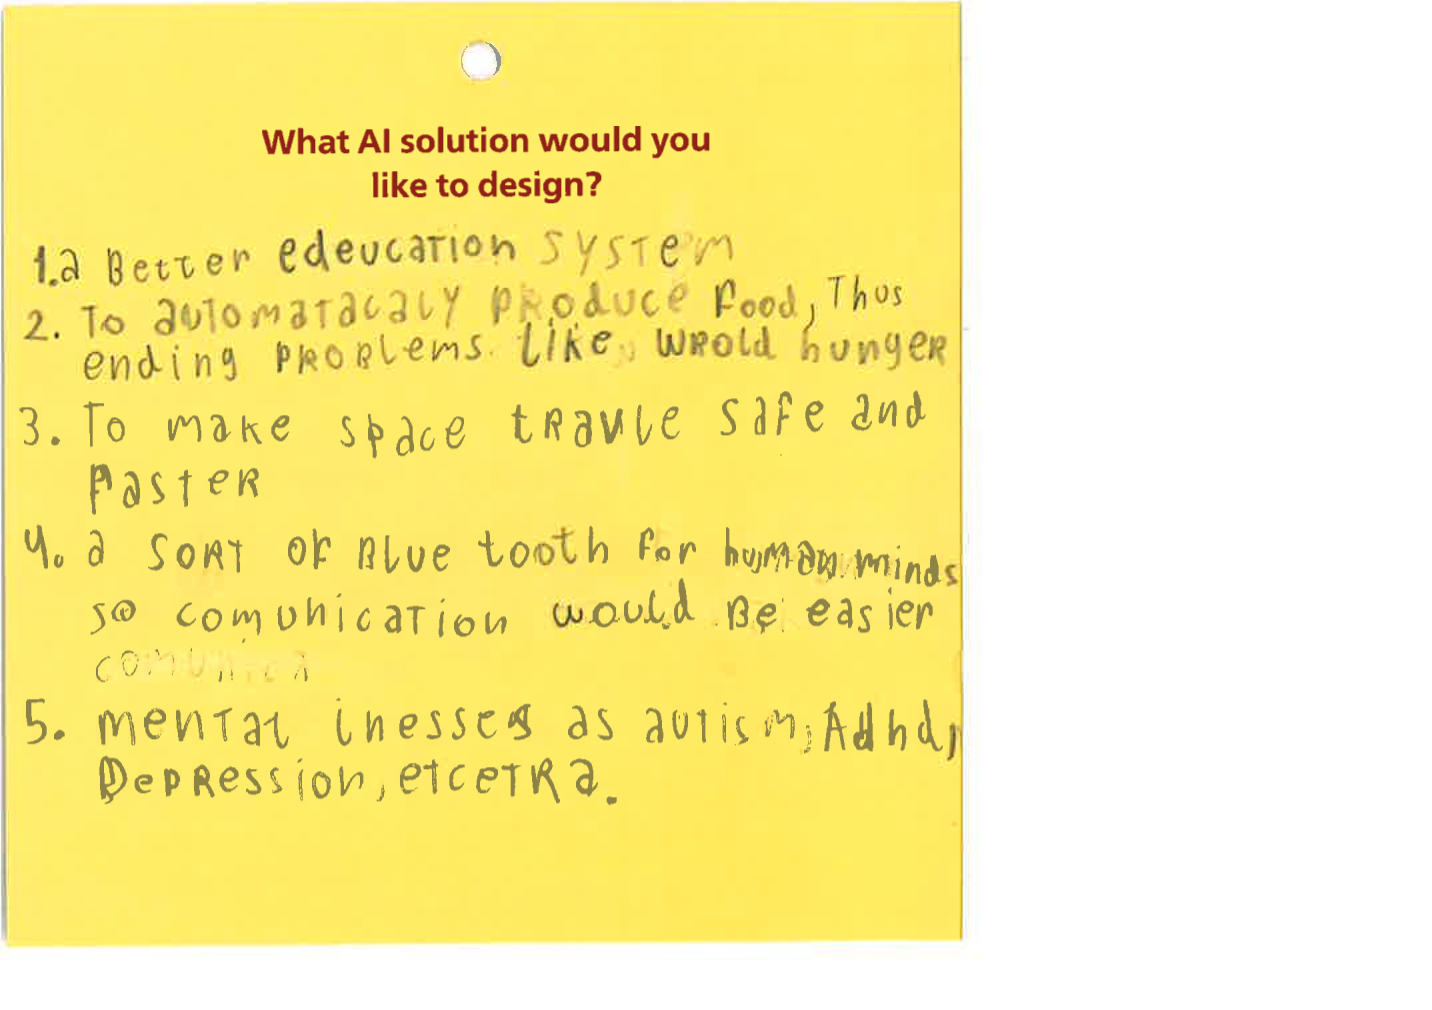 What AI solution would you
like to design?
1.a Better edeucation system
2. To automatacaly produce food, Thus
ending problems like, wrold hunger
3. To make space travle safe and
Faster
4. a sort of Blue tooth for human minds
so comunication would Be easier
comunica
5. mental inesses as autism, Adhd,
Depression, etcetra.